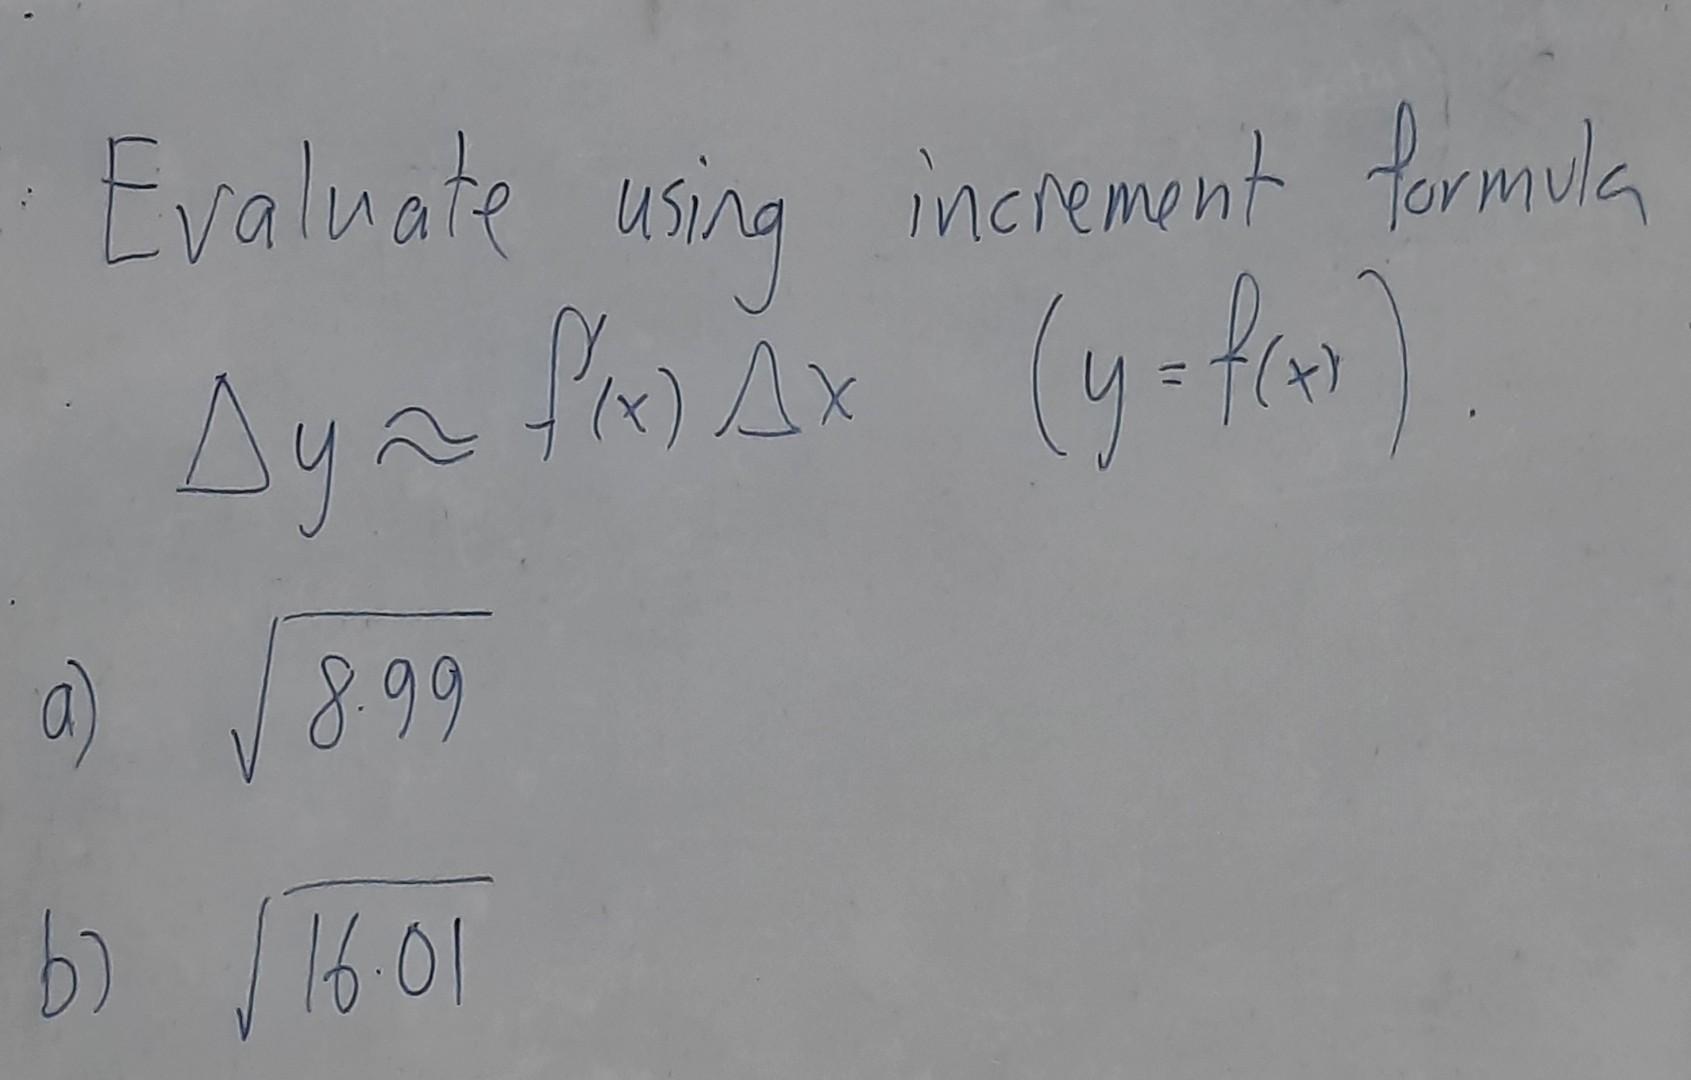 Evaluate using increment formula
Δy ≈ f'(x) Δx (y = f(x)).
a) √8.99
b) √16.01